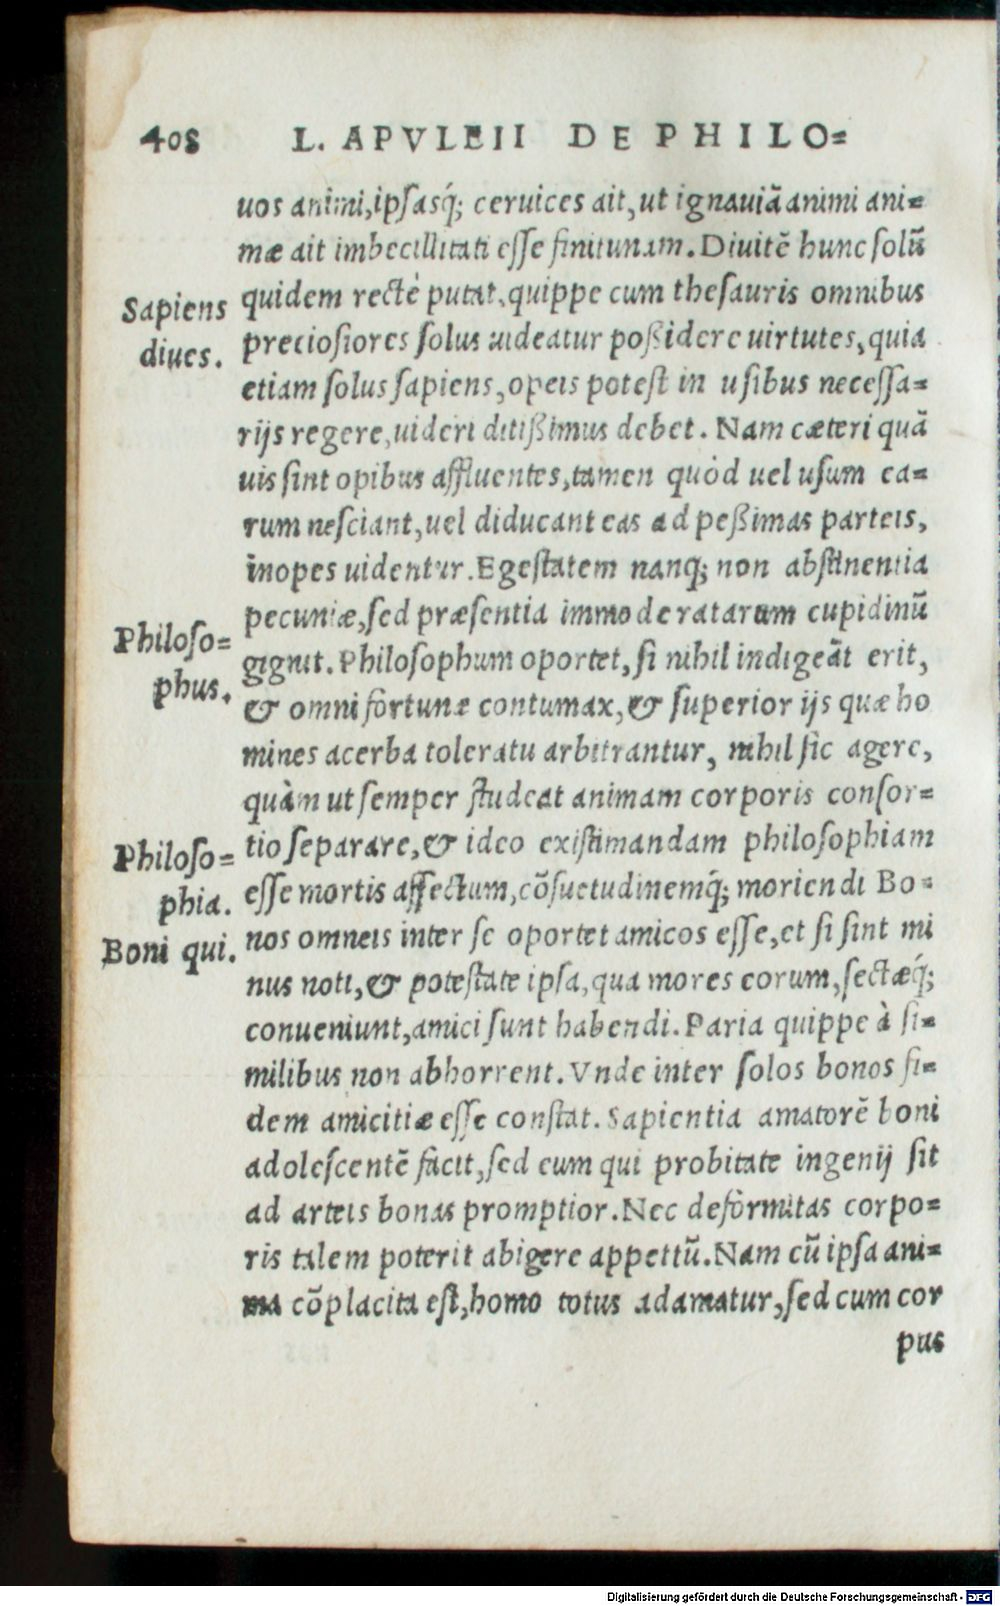 408 L. APVLEII DE PHILO=
uos animi, ipsasq́; ceruices ait, ut ignauiã animi ani=
mæ ait imbecillitati esse finitimam. Diuitẽ hunc solũ
Sapiens diues.
quidem rectè putat, quippe cum thesauris omnibus
preciosiores solus uideatur poßidere uirtutes, quia
etiam solus sapiens, opeis potest in usibus necessa=
rijs regere, uideri ditißimus debet. Nam cæteri quã
uis sint opibus affluentes, tamen quòd uel usum ea=
rum nesciant, uel diducant eas ad peßimas parteis,
inopes uidentur. Egestatem nanq; non abstinentia
pecuniæ, sed præsentia immoderatarum cupidinũ
Philoso=
phus.
gignit. Philosophum oportet, si nihil indigeãt erit,
& omni fortunæ contumax, & superior ijs quæ ho
mines acerba toleratu arbitrantur, nihil sic agere,
quàm ut semper studeat animam corporis consor=
Philoso=
phia.
tio separare, & ideo existimandam philosophiam
esse mortis affectum, cõsuetudinemq́; moriendi Bo=
Boni qui.
nos omneis inter se oportet amicos esse, et si sint mi
nus noti, & potestate ipsa, qua mores eorum, sectæq́;
conueniunt, amici sunt habendi. Paria quippe à si=
milibus non abhorrent. Vnde inter solos bonos fi=
dem amicitiæ esse constat. Sapientia amatorẽ boni
adolescentẽ facit, sed eum qui probitate ingenij sit
ad arteis bonas promptior. Nec deformitas corpo=
ris talem poterit abigere appettũ. Nam cũ ipsa ani=
ma cõplacita est, homo totus adamatur, sed cum cor
pus
Digitalisierung gefördert durch die Deutsche Forschungsgemeinschaft - DFG